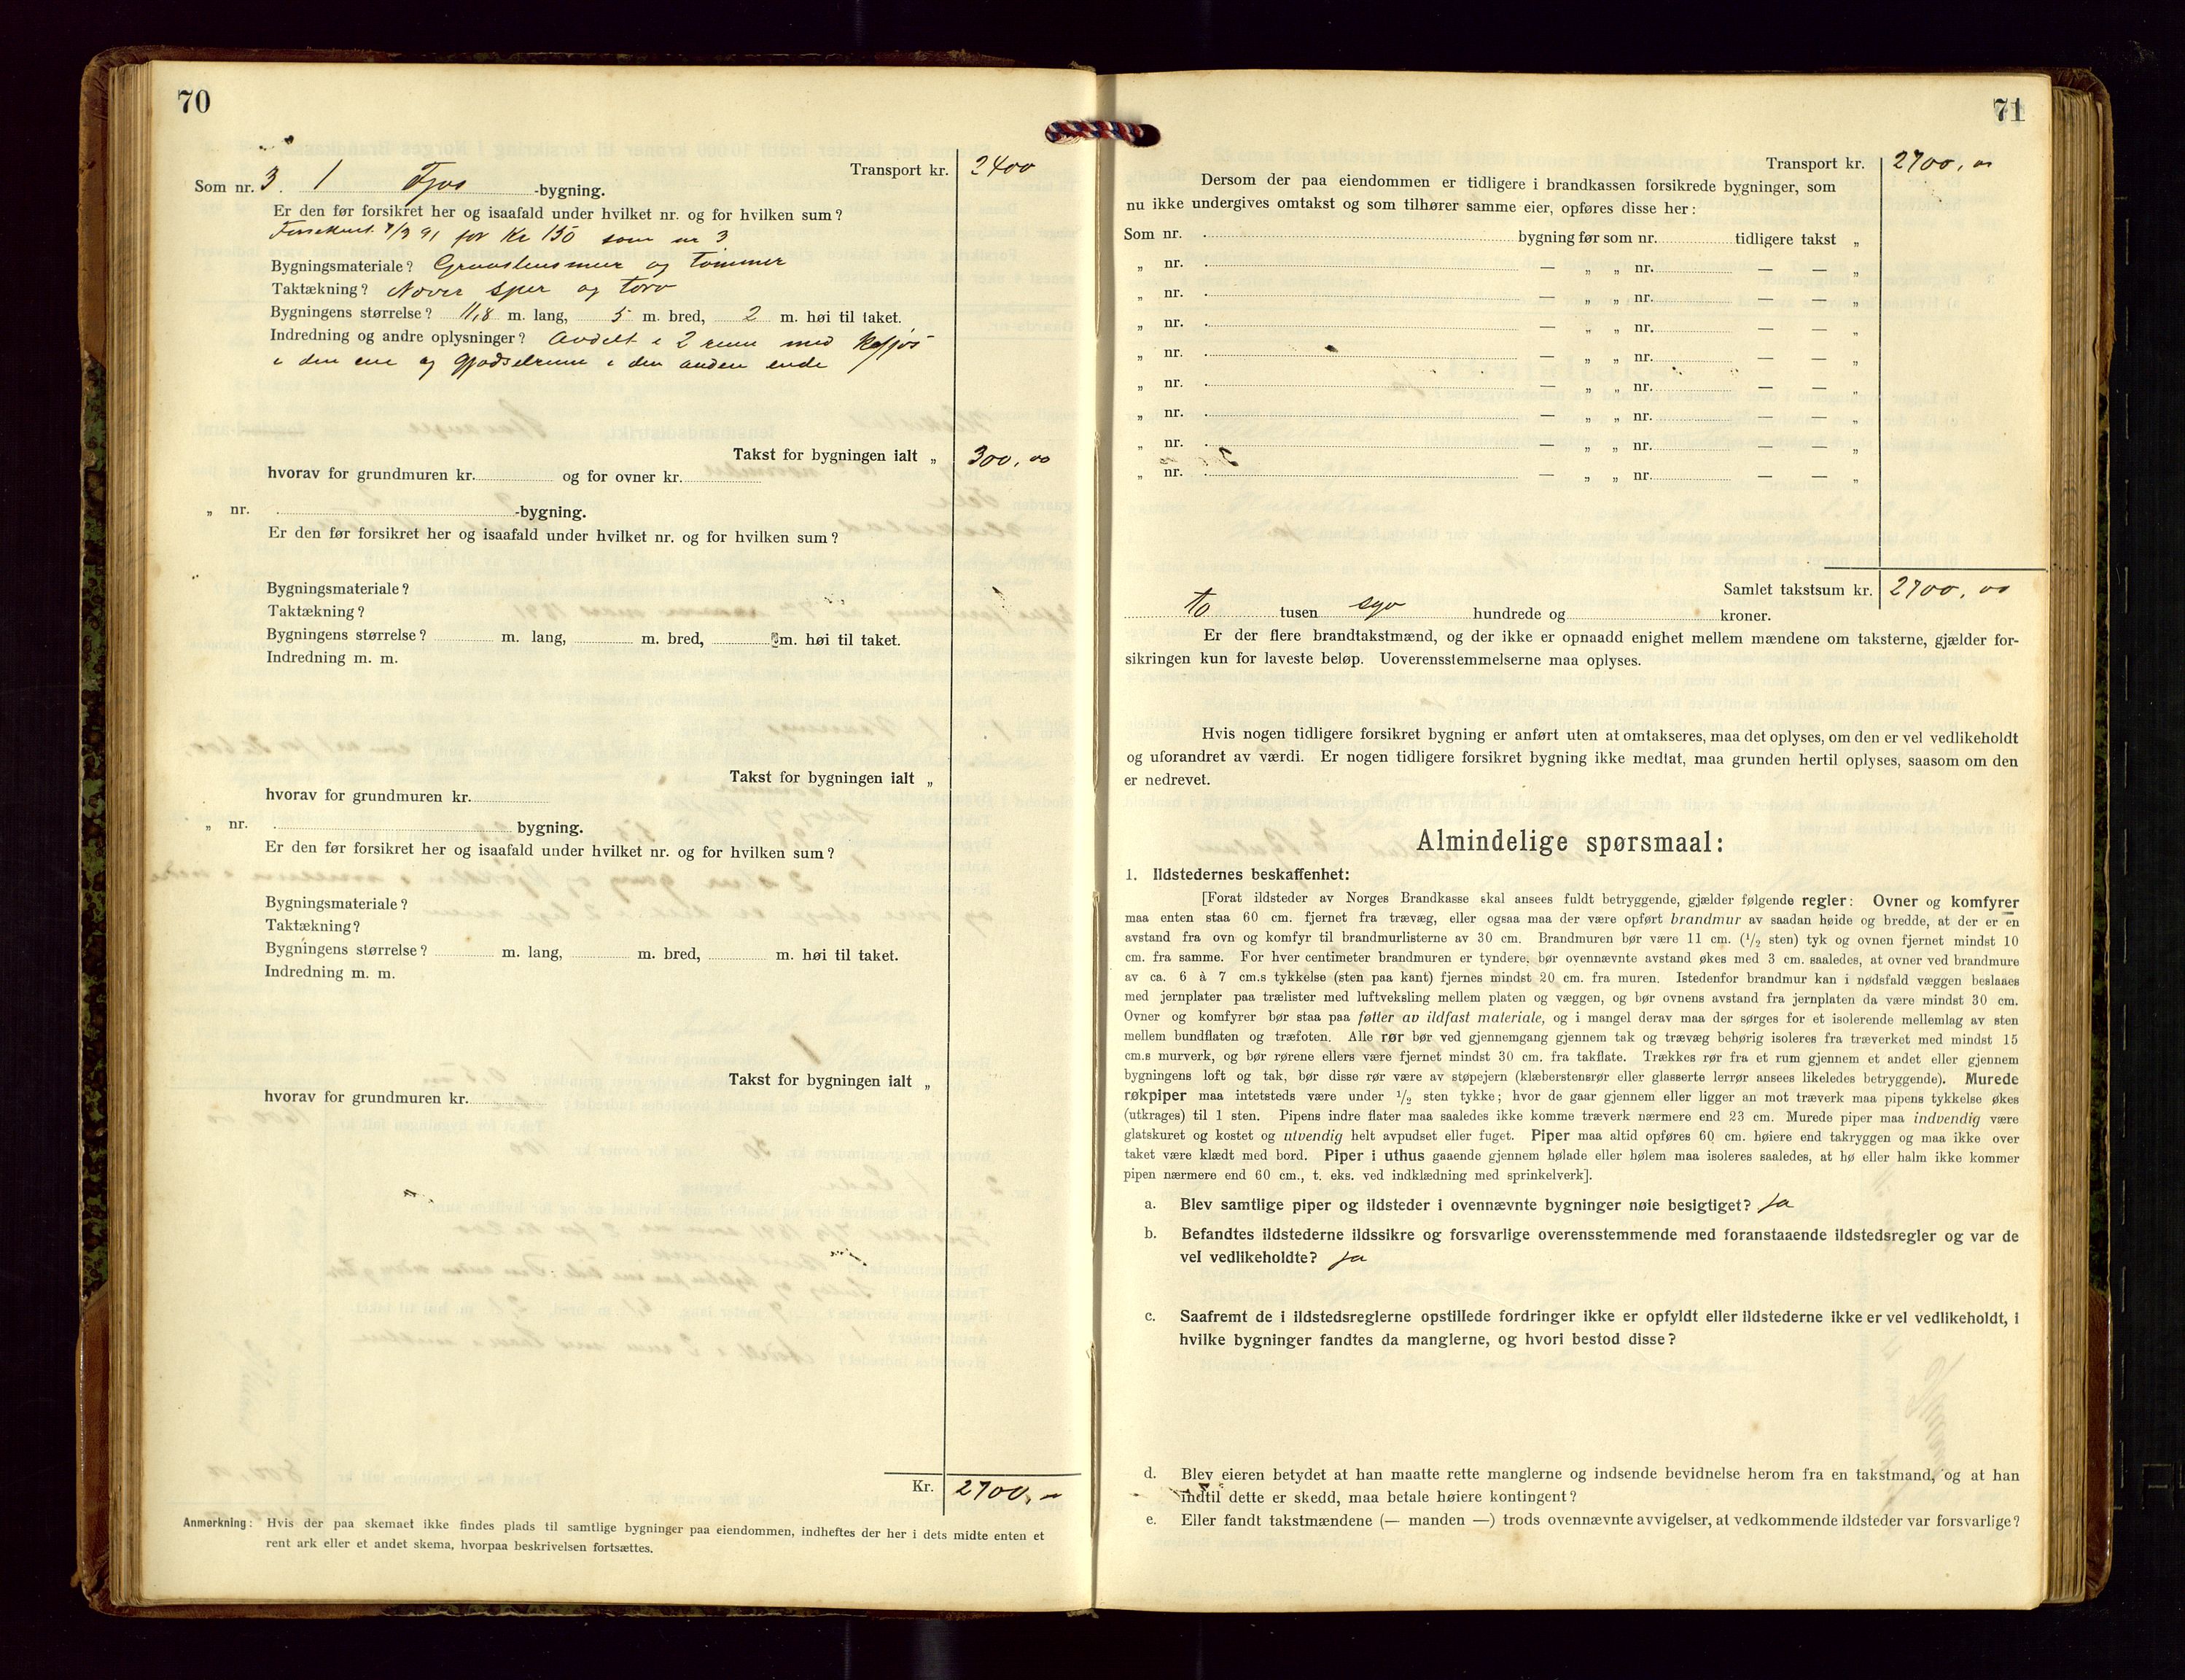 70
Transport kr. 2400
Som nr. 3. 1 Fjøs -bygning.
Er den før forsikret her og isaafald under hvilket nr. og for hvilken sum?
Forsikret 7/3 91 for Kr 150 som nr 3
Bygningsmateriale? Graastensmur og Tømmer
Taktækning? Næver sper og torv
Bygningens størrelse? 11,8 m. lang, 5 m. bred, 2 m. høi til taket.
Indredning og andre oplysninger? Avdelt i 2 rum med
i den ene og gjødselrum i den anden ende
Takst for bygningen ialt „ 300,00
hvorav for grundmuren kr. og for ovner kr.
„ nr. -bygning.
Er den før forsikret her og isaafald under hvilket nr. og for hvilken sum?
Bygningsmateriale?
Taktækning?
Bygningens størrelse? m. lang, m. bred, m. høi til taket.
Indredning m. m.
Takst for bygningen ialt „
hvorav for grundmuren kr.
„ nr. bygning.
Er den før forsikret her og isaafald under hvilket nr. og for hvilken sum?
Bygningsmateriale?
Taktækning?
Bygningens størrelse? m. lang, m. bred, m. høi til taket.
Indredning m. m.
Takst for bygningen ialt „
hvorav for grundmuren kr.
Kr. 2700,-
Anmerkning: Hvis der paa skemaet ikke findes plads til samtlige bygninger paa eiendommen, indheftes der her i dets midte enten et
rent ark eller et andet skema, hvorpaa beskrivelsen fortsættes.
71
Transport kr. 2700,00
Dersom der paa eiendommen er tidligere i brandkassen forsikrede bygninger, som
nu ikke undergives omtakst og som tilhører samme eier, opføres disse her:
Som nr. bygning før som nr. tidligere takst „
„ nr. — „ „ nr. — — „
„ nr. — „ „ nr. — — „
„ nr. — „ „ nr. — — „
„ nr. — „ „ nr. — — „
„ nr. — „ „ nr. — — „
„ nr. — „ „ nr. — — „
„ nr. — „ „ nr. — — „
„ nr. — „ „ nr. — — „
Samlet takstsum kr. 2700,00
to tusen syv hundrede og kroner.
Er der flere brandtakstmænd, og der ikke er opnaadd enighet mellem mændene om taksterne, gjælder for-
sikringen kun for laveste beløp. Uoverensstemmelserne maa oplyses.
Hvis nogen tidligere forsikret bygning er anført uten at omtakseres, maa det oplyses, om den er vel vedlikeholdt
og uforandret av værdi. Er nogen tidligere forsikret bygning ikke medtat, maa grunden hertil oplyses, saasom om den
er nedrevet.
Almindelige spørsmaal:
1. Ildstedernes beskaffenhet:
[Forat ildsteder av Norges Brandkasse skal ansees fuldt betryggende, gjælder følgende regler: Ovner og komfyrer
maa enten staa 60 cm. fjernet fra trævæg, eller ogsaa maa der være opført brandmur av saadan høide og bredde, at der er en
avstand fra ovn og komfyr til brandmurlisterne av 30 cm. Brandmuren bør være 11 cm. (1/2 sten) tyk og ovnen fjernet mindst 10
cm. fra samme. For hver centimeter brandmuren er tyndere, bør ovennævnte avstand økes med 3 cm. saaledes, at ovner ved brandmure
av ca. 6 à 7 cm.s tykkelse (sten paa kant) fjernes mindst 20 cm. fra muren. Istedenfor brandmur kan i nødsfald væggen beslaaes
med jernplater paa trælister med luftveksling mellem platen og væggen, og bør ovnens avstand fra jernplaten da være mindst 30 cm.
Ovner og komfyrer bør staa paa føtter av ildfast materiale, og i mangel derav maa der sørges for et isolerende mellemlag av sten
mellem bundflaten og træfoten. Alle rør bør ved gjennemgang gjennem tak og trævæg behørig isoleres fra træverket med mindst 15
cm.s murverk, og bør rørene ellers være fjernet mindst 30 cm. fra takflate. Trækkes rør fra et rum gjennem et andet eller gjennem
bygningens loft og tak, bør disse rør være av støpejern (klæberstensrør eller glasserte lerrør ansees likeledes betryggende). Murede
røkpiper maa intetsteds være under 1/2 sten tykke; hvor de gaar gjennem eller ligger an mot træverk maa pipens tykkelse økes
(utkrages) til 1 sten. Pipens indre flater maa saaledes ikke komme træverk nærmere end 23 cm. Murede piper maa indvendig være
glatskuret og kostet og utvendig helt avpudset eller fuget. Piper maa altid opføres 60 cm. høiere end takryggen og maa ikke over
taket være klædt med bord. Piper i uthus gaaende gjennem hølade eller hølem maa isoleres saaledes, at hø eller halm ikke kommer
pipen nærmere end 60 cm., t. eks. ved indklædning med sprinkelverk].
a. Blev samtlige piper og ildsteder i ovennævnte bygninger nøie besigtiget? Ja
b. Befandtes ildstederne ildssikre og forsvarlige overensstemmende med foranstaaende ildstedsregler og var de
vel vedlikeholdte? Ja
c. Saafremt de i ildstedsreglerne opstillede fordringer ikke er opfyldt eller ildstederne ikke er vel vedlikeholdt, i
hvilke bygninger fandtes da manglerne, og hvori bestod disse?
d. Blev eieren betydet at han maatte rette manglerne og indsende bevidnelse herom fra en takstmand, og at han
indtil dette er skedd, maa betale høiere kontingent?
e. Eller fandt takstmændene (— manden —) trods ovennævnte avvigelser, at vedkommende ildsteder var forsvarlige?